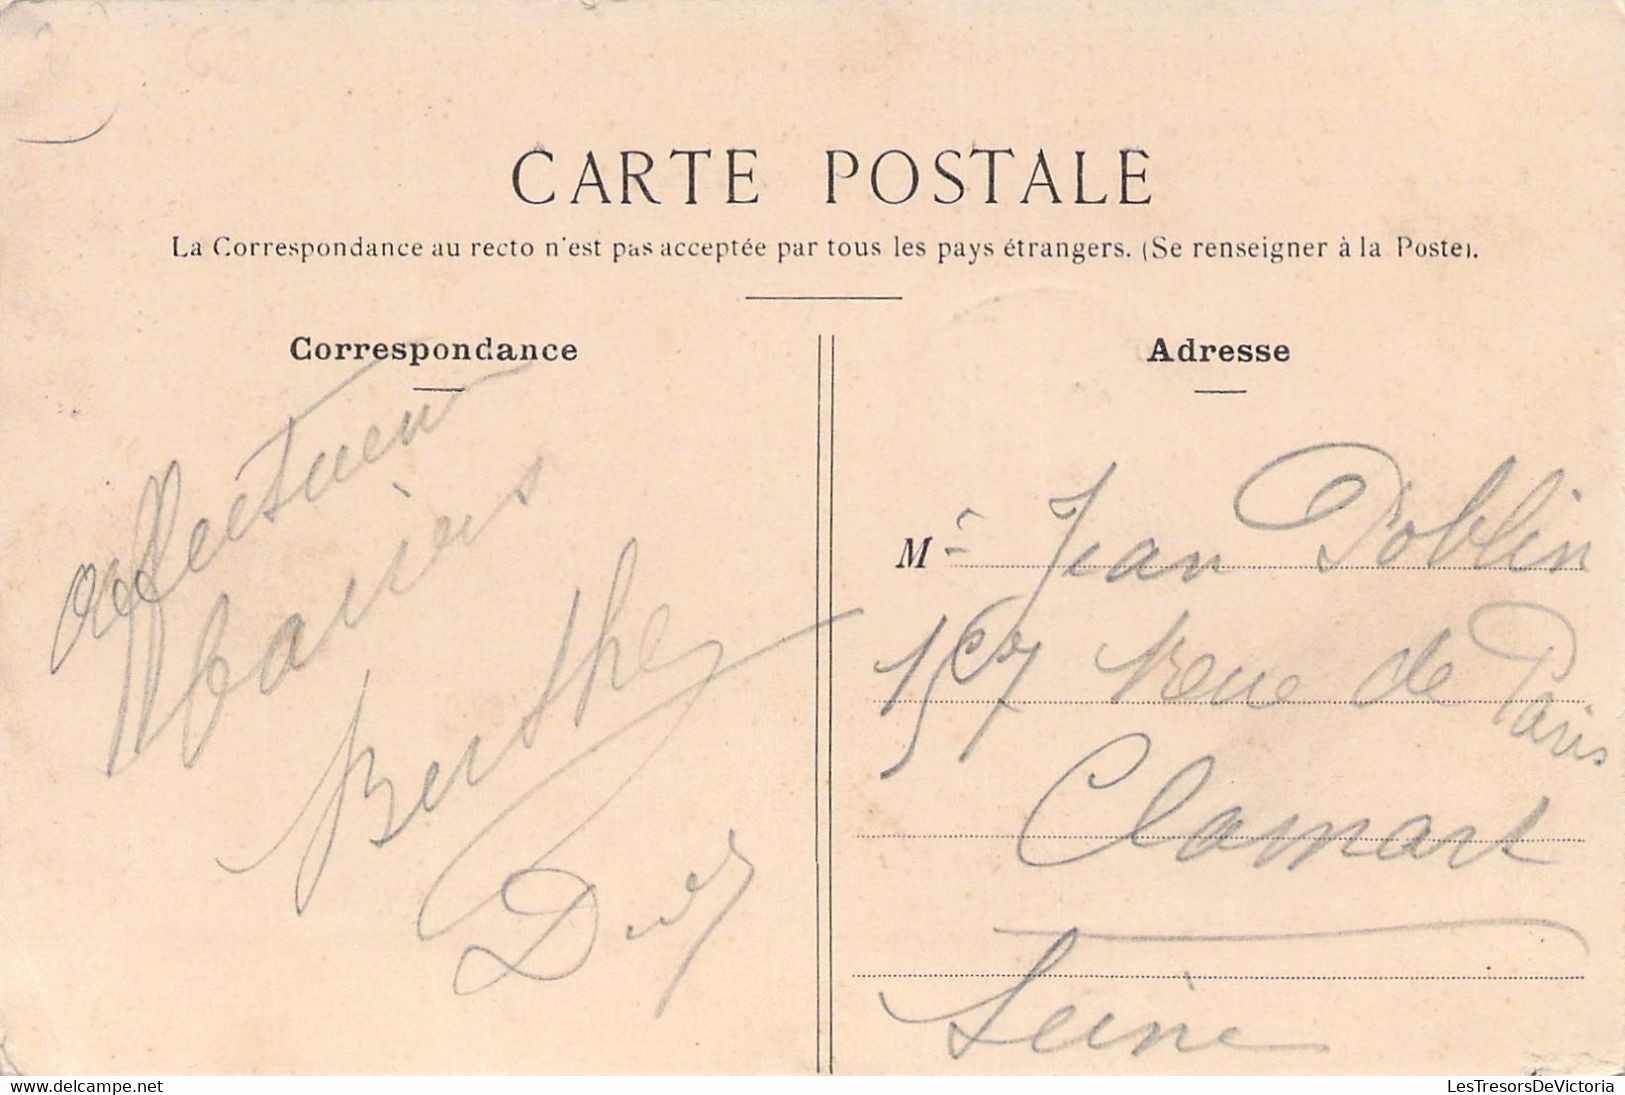 CARTE POSTALE
La Correspondance au recto n'est pas acceptée par tous les pays étrangers. (Se renseigner à la Poste).
Correspondance
affectueux
Baisers
Berthe
Adresse
Mr Jean Poblin
157 Reue de Paris
Clamart
Seine
www.delcampe.net
LesTresorsDeVictoria